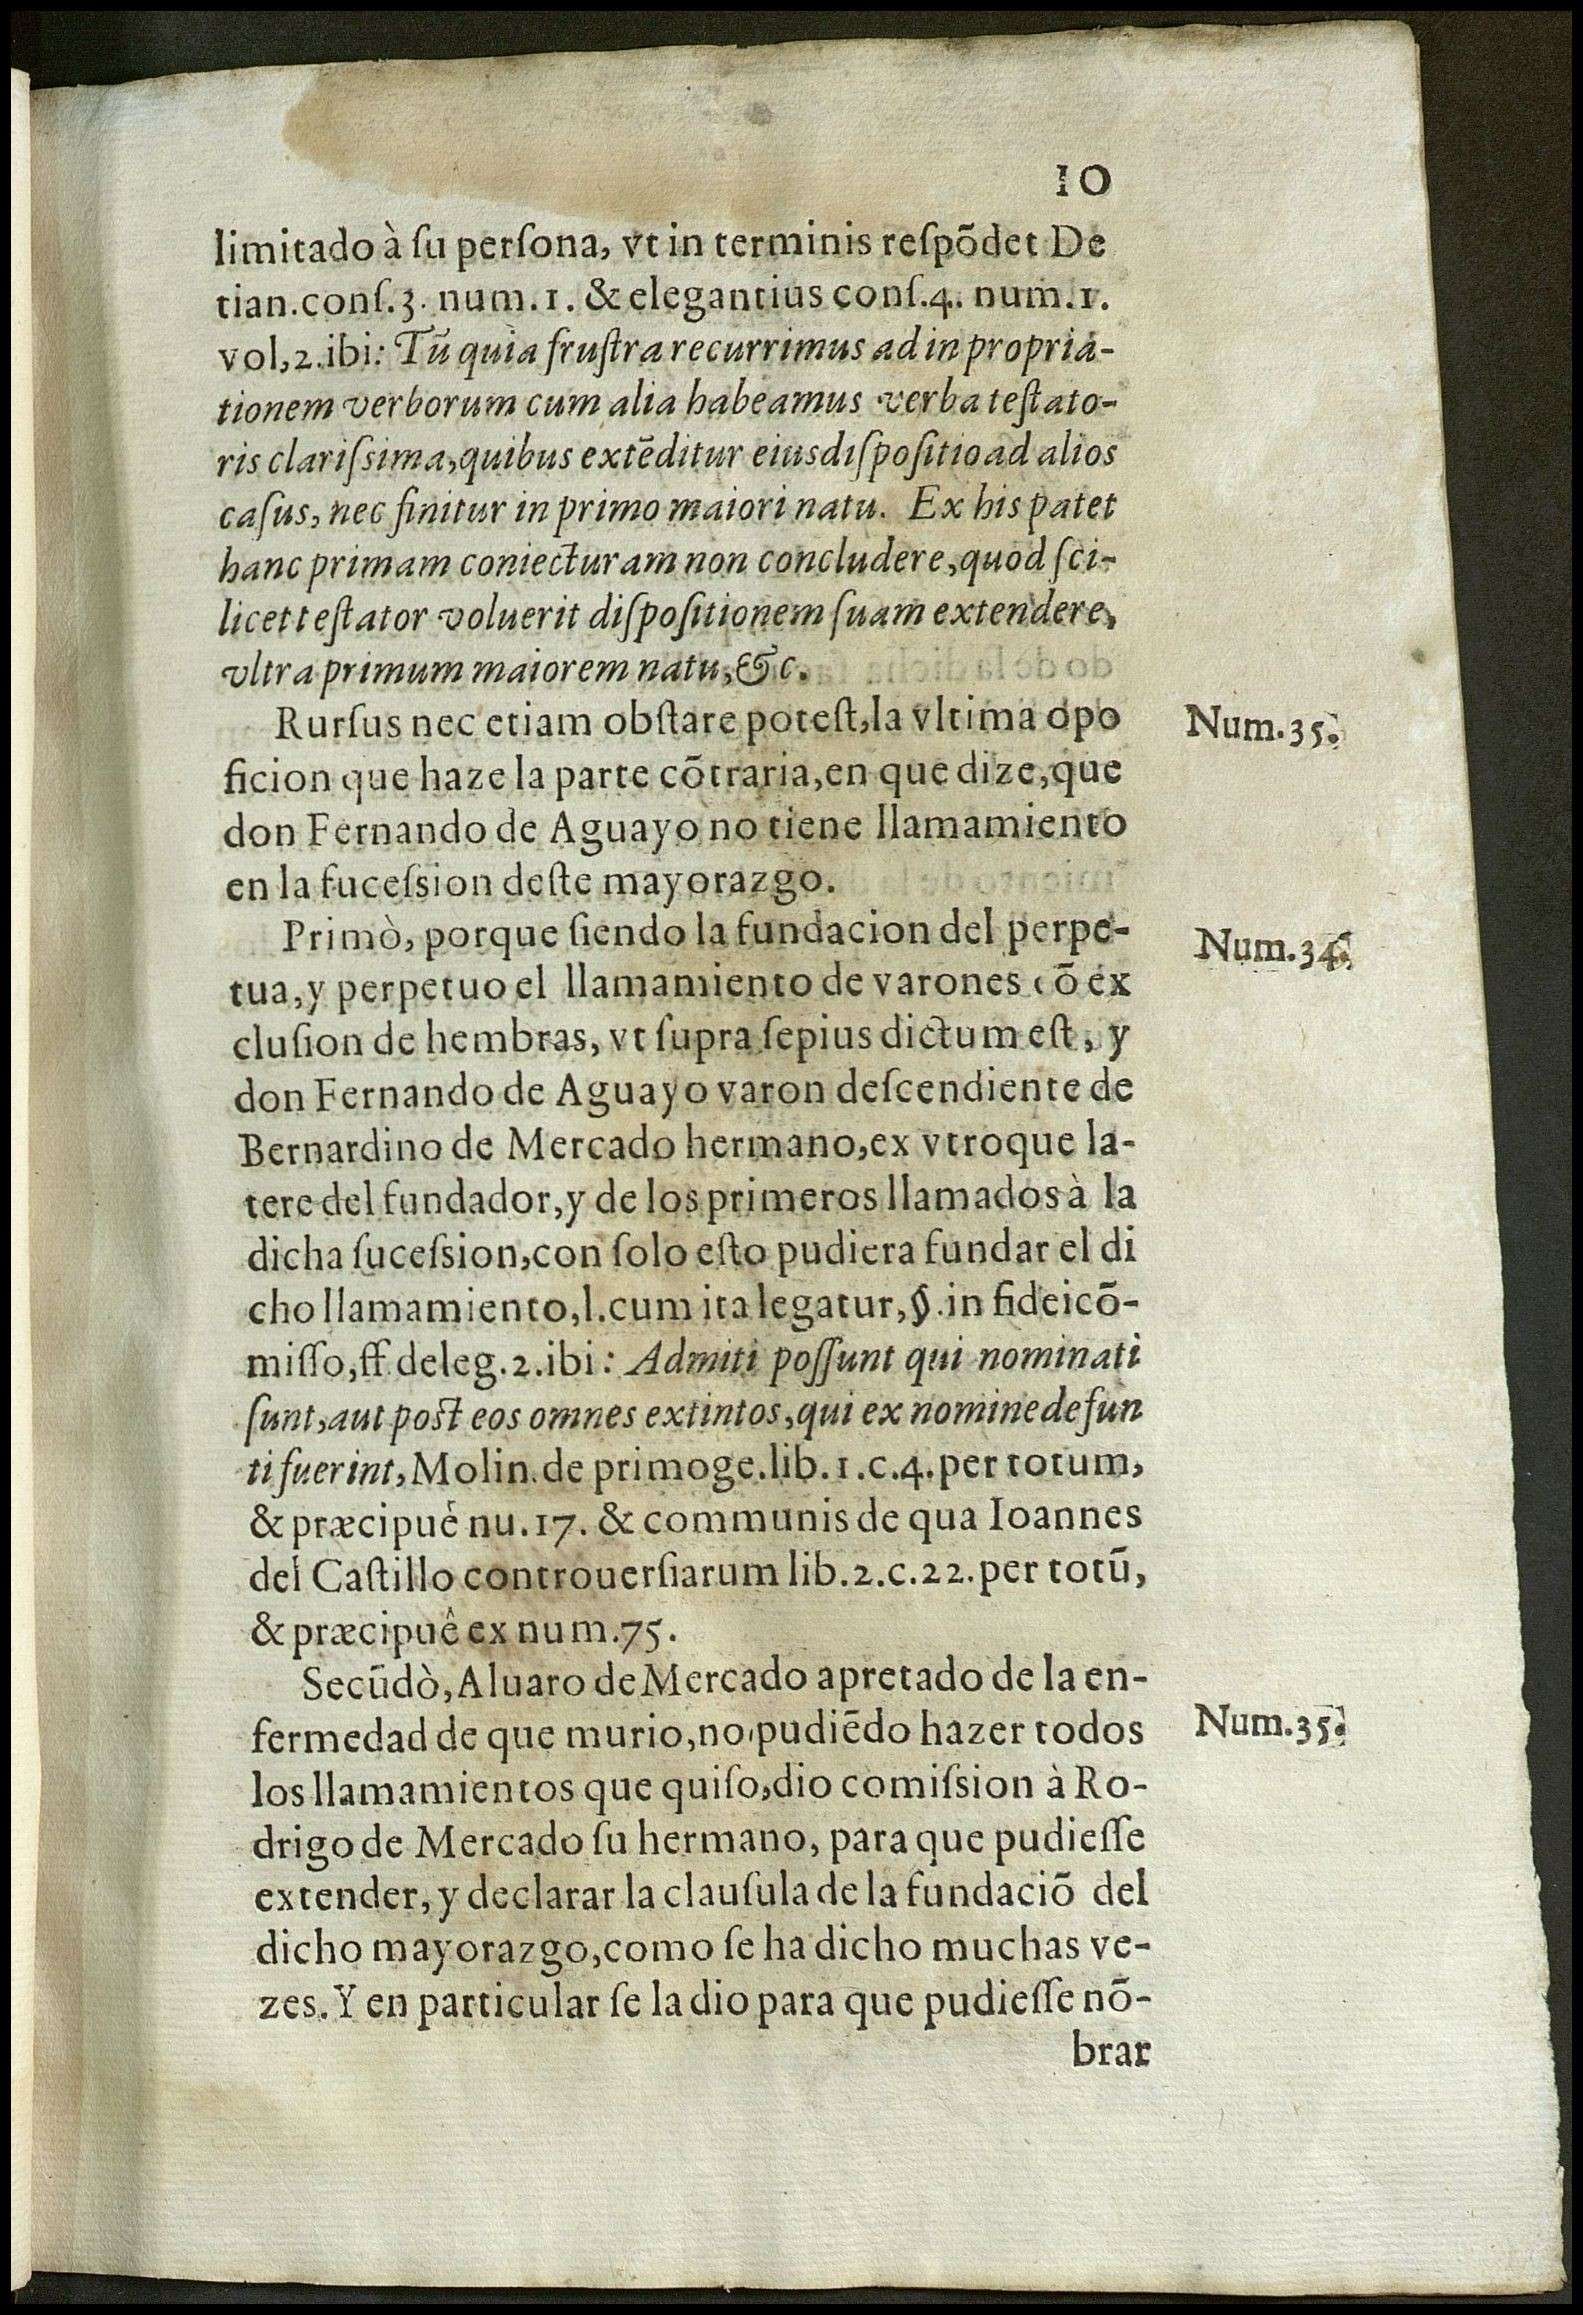 10
limitado à ſu perſona, vt in terminis reſpõdet De
tian.conſ.3. num.1. & elegantius conſ.4. num.1.
vol,2.ibi: Tũ quia fruſtra recurrimus ad inpropria-
tionem verborum cum alia habeamus verba teſtato-
ris clariſsima,quibus extẽditur eius diſpoſitio ad alios
caſus, nec finitur in primo maiori natu. Ex his patet
hanc primam coniecturam non concludere,quod ſci-
licet teſtator voluerit diſpoſitionem ſuam extendere,
vltra primum maiorem natu,&c.
Rurſus nec etiam obſtare poteſt,la vltima opo
ſicion que haze la parte cõtraria,en que dize,que
Num.35.
don Fernando de Aguayo no tiene llamamiento
en la ſuceſsion deſte mayorazgo.
Primò, porque ſiendo la fundacion del perpe-
Num.34.
tua,y perpetuo el llamamiento de varones cõ ex
cluſion de hembras, vt ſupra ſepius dictum eſt, y
don Fernando de Aguayo varon deſcendiente de
Bernardino de Mercado hermano,ex vtroque la-
tere del fundador,y de los primeros llamados à la
dicha ſuceſsion,con ſolo eſto pudiera fundar el di
cho llamamiento,l.cum ita legatur,§.in fideicõ-
miſſo,ff deleg.2.ibi: Admiti poſſunt qui nominati
ſunt,aut poſt eos omnes extintos,qui ex nomine defun
ti fuerint,Molin.de primoge.lib.1.c.4.per totum,
& præcipuè nu.17. & communis de qua Ioannes
del Caſtillo controuerſiarum lib.2.c.22.per totũ,
& præcipuê ex num.75.
Secũdò,Aluaro de Mercado apretado de la en-
fermedad de que murio,no pudiẽdo hazer todos
Num.35.
los llamamientos que quiſo,dio comiſsion à Ro-
drigo de Mercado ſu hermano, para que pudieſſe
extender, y declarar la clauſula de la fundaciõ del
dicho mayorazgo,como ſe ha dicho muchas ve-
zes.Y en particular ſe la dio para que pudieſſe nõ-
brar